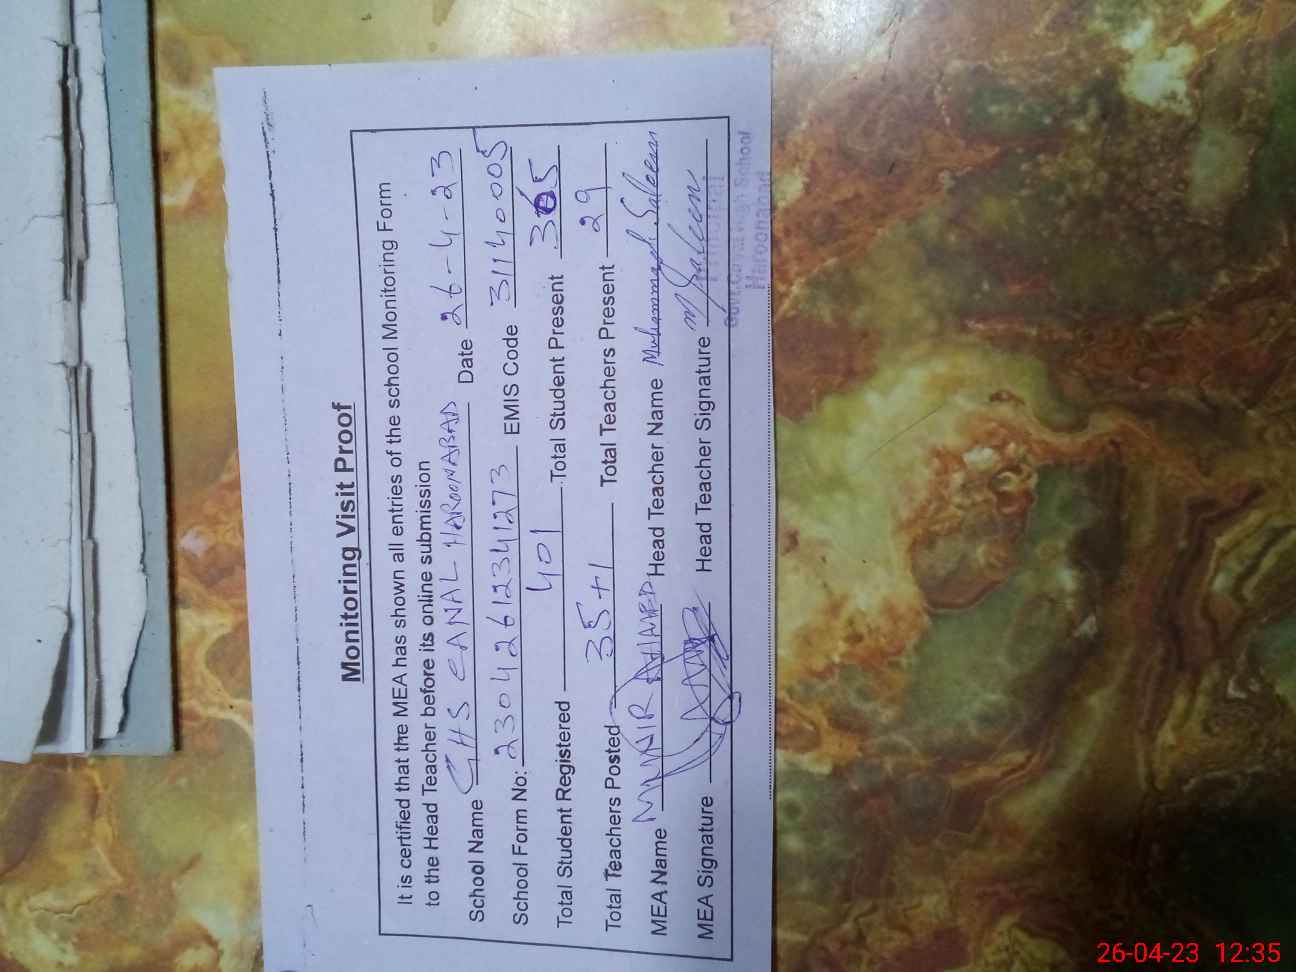 Monitoring Visit Proof
It is certified that the MEA has shown all entries of the school Monitoring Form
to the Head Teacher before its online submission
School Name GHS CANAL HAROONABAD Date 26-4-23
School Form No: 23042612341273 EMIS Code 31140005
Total Student Registered 401 Total Student Present 365
Total Teachers Posted 35+1 Total Teachers Present 29
MEA Name MUNIR AHMED Head Teacher Name Muhammad Saleem
MEA Signature Head Teacher Signature M Saleem
Govt. Canal High School
Haroonabad
26-04-23 12:35